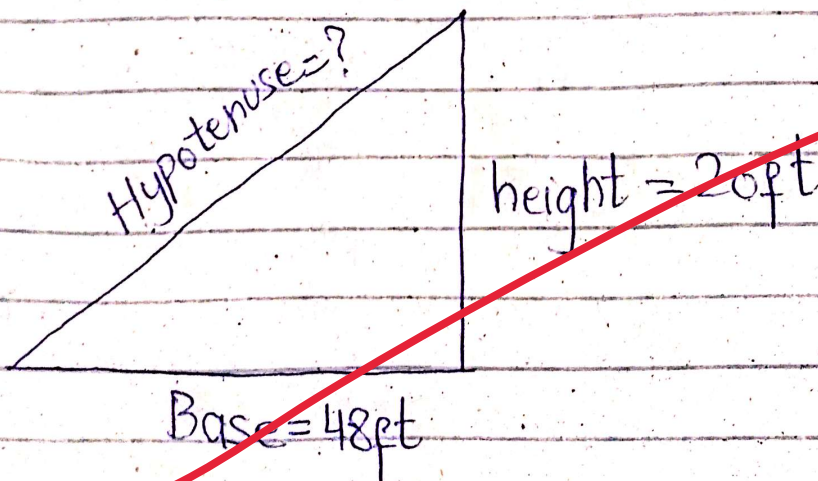 Hypotenuse=?
height = 20ft
Base=48ft